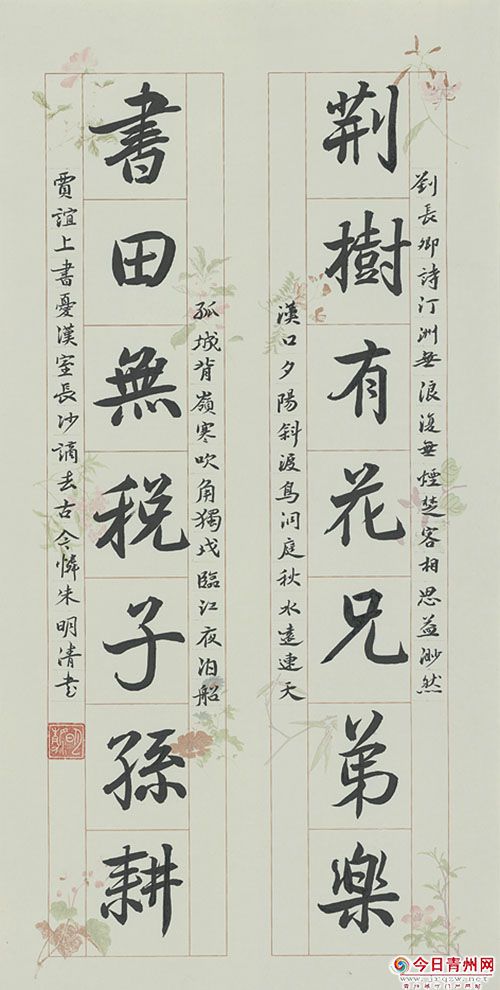 劉長卿詩汀洲無浪復無煙楚客相思益渺然
荆樹有花兄弟樂
漢口夕陽斜渡鳥洞庭秋水遠連天
孤城背嶺寒吹角獨戍臨江夜泊船
書田無税子孫耕
賈誼上書憂漢室長沙謫去古今憐朱明清書
今日青州网
www.jrqzw.net